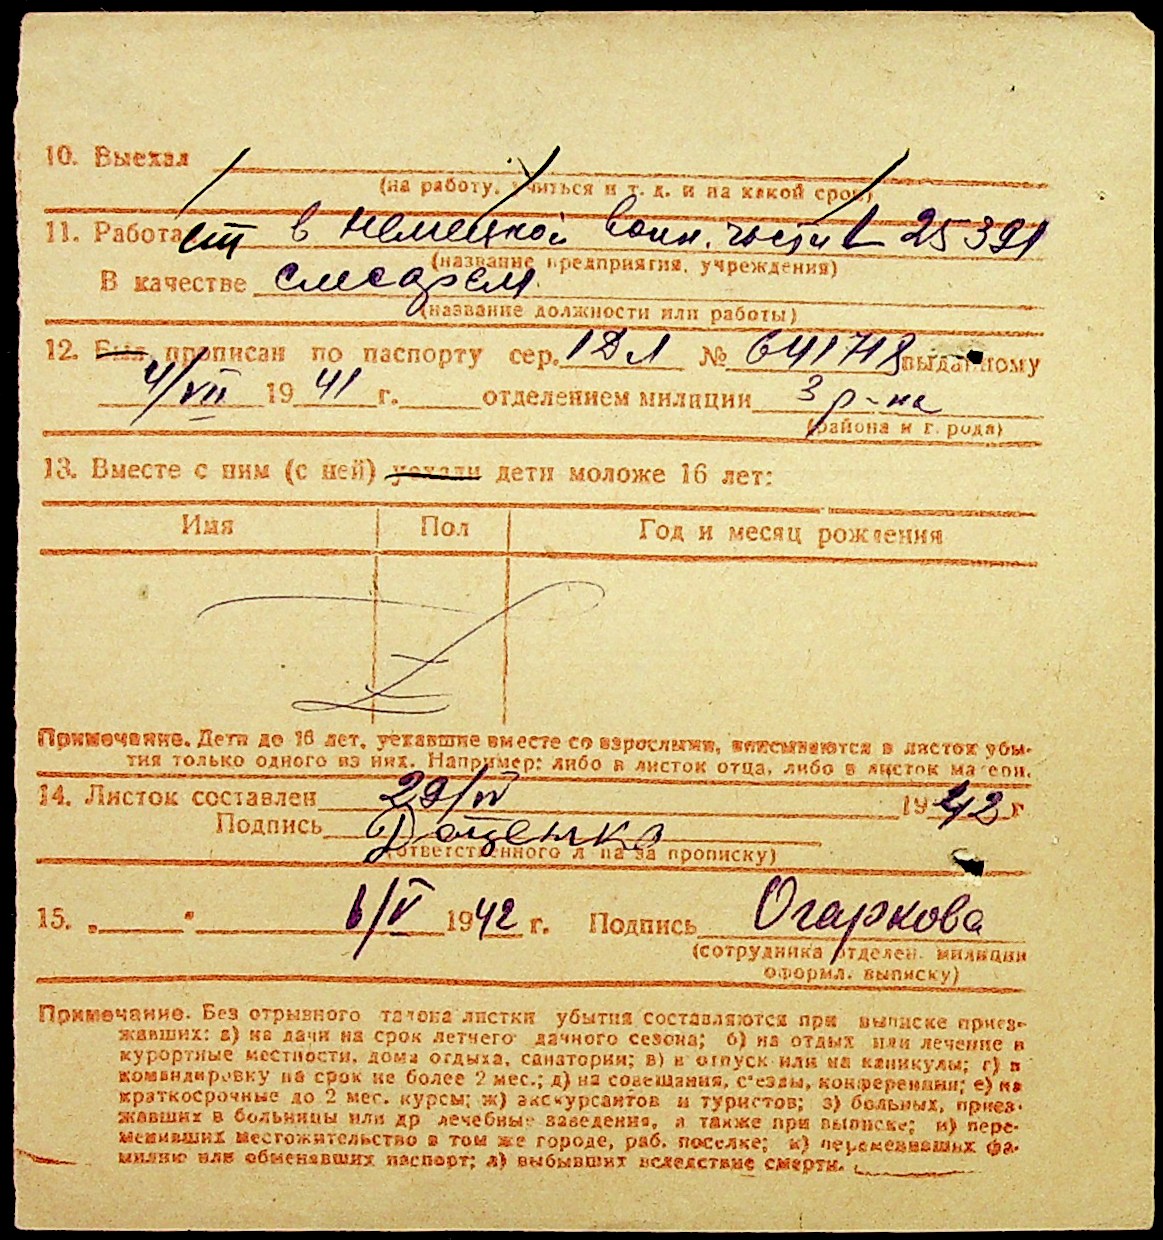 10. Выехал
(на работу, учиться и т. д. и на какой срок)
11. Работает в немецкой воин. части 25391
(название предприятия, учреждения)
В качестве слесарем
(название должности или работы)
12. Был прописан по паспорту сер. 1ДЛ № 641718 выданному
4/VII 1941 г. отделением милиции 3 р-на
(района и города)
13. Вместе с ним (с ней) уехали дети моложе 16 лет:
Имя Пол Год и месяц рождения
Примечание. Дети до 16 лет, уехавшие вместе со взрослыми, вписываются в листок убы-
тия только одного из них. Например: либо в листок отца, либо в листок матери.
14. Листок составлен 29/IV 1942 г
Подпись Доценко
(ответственного лица за прописку)
15. „ “ 6/V 1942 г. Подпись Огаркова
(сотрудника отделен. милиции
оформл. выписку)
Примечание. Без отрывного талона листки убытия составляются при выписке приез-
жавших: а) на дачи на срок летнего дачного сезона; б) на отдых или лечение в
курортные местности, дома отдыха, санатории; в) в отпуск или на каникулы; г) в
командировку на срок не более 2 мес.; д) на совещания, с'езды, конференции; е) на
краткосрочные до 2 мес. курсы; ж) экскурсантов и туристов; з) больных, приез-
жавших в больницы или др лечебные заведения, а также при выписке; и) пере-
менивших местожительство в том же городе, раб. поселке; к) переменивших фа-
милию или обменявших паспорт; л) выбывших вследствие смерти.